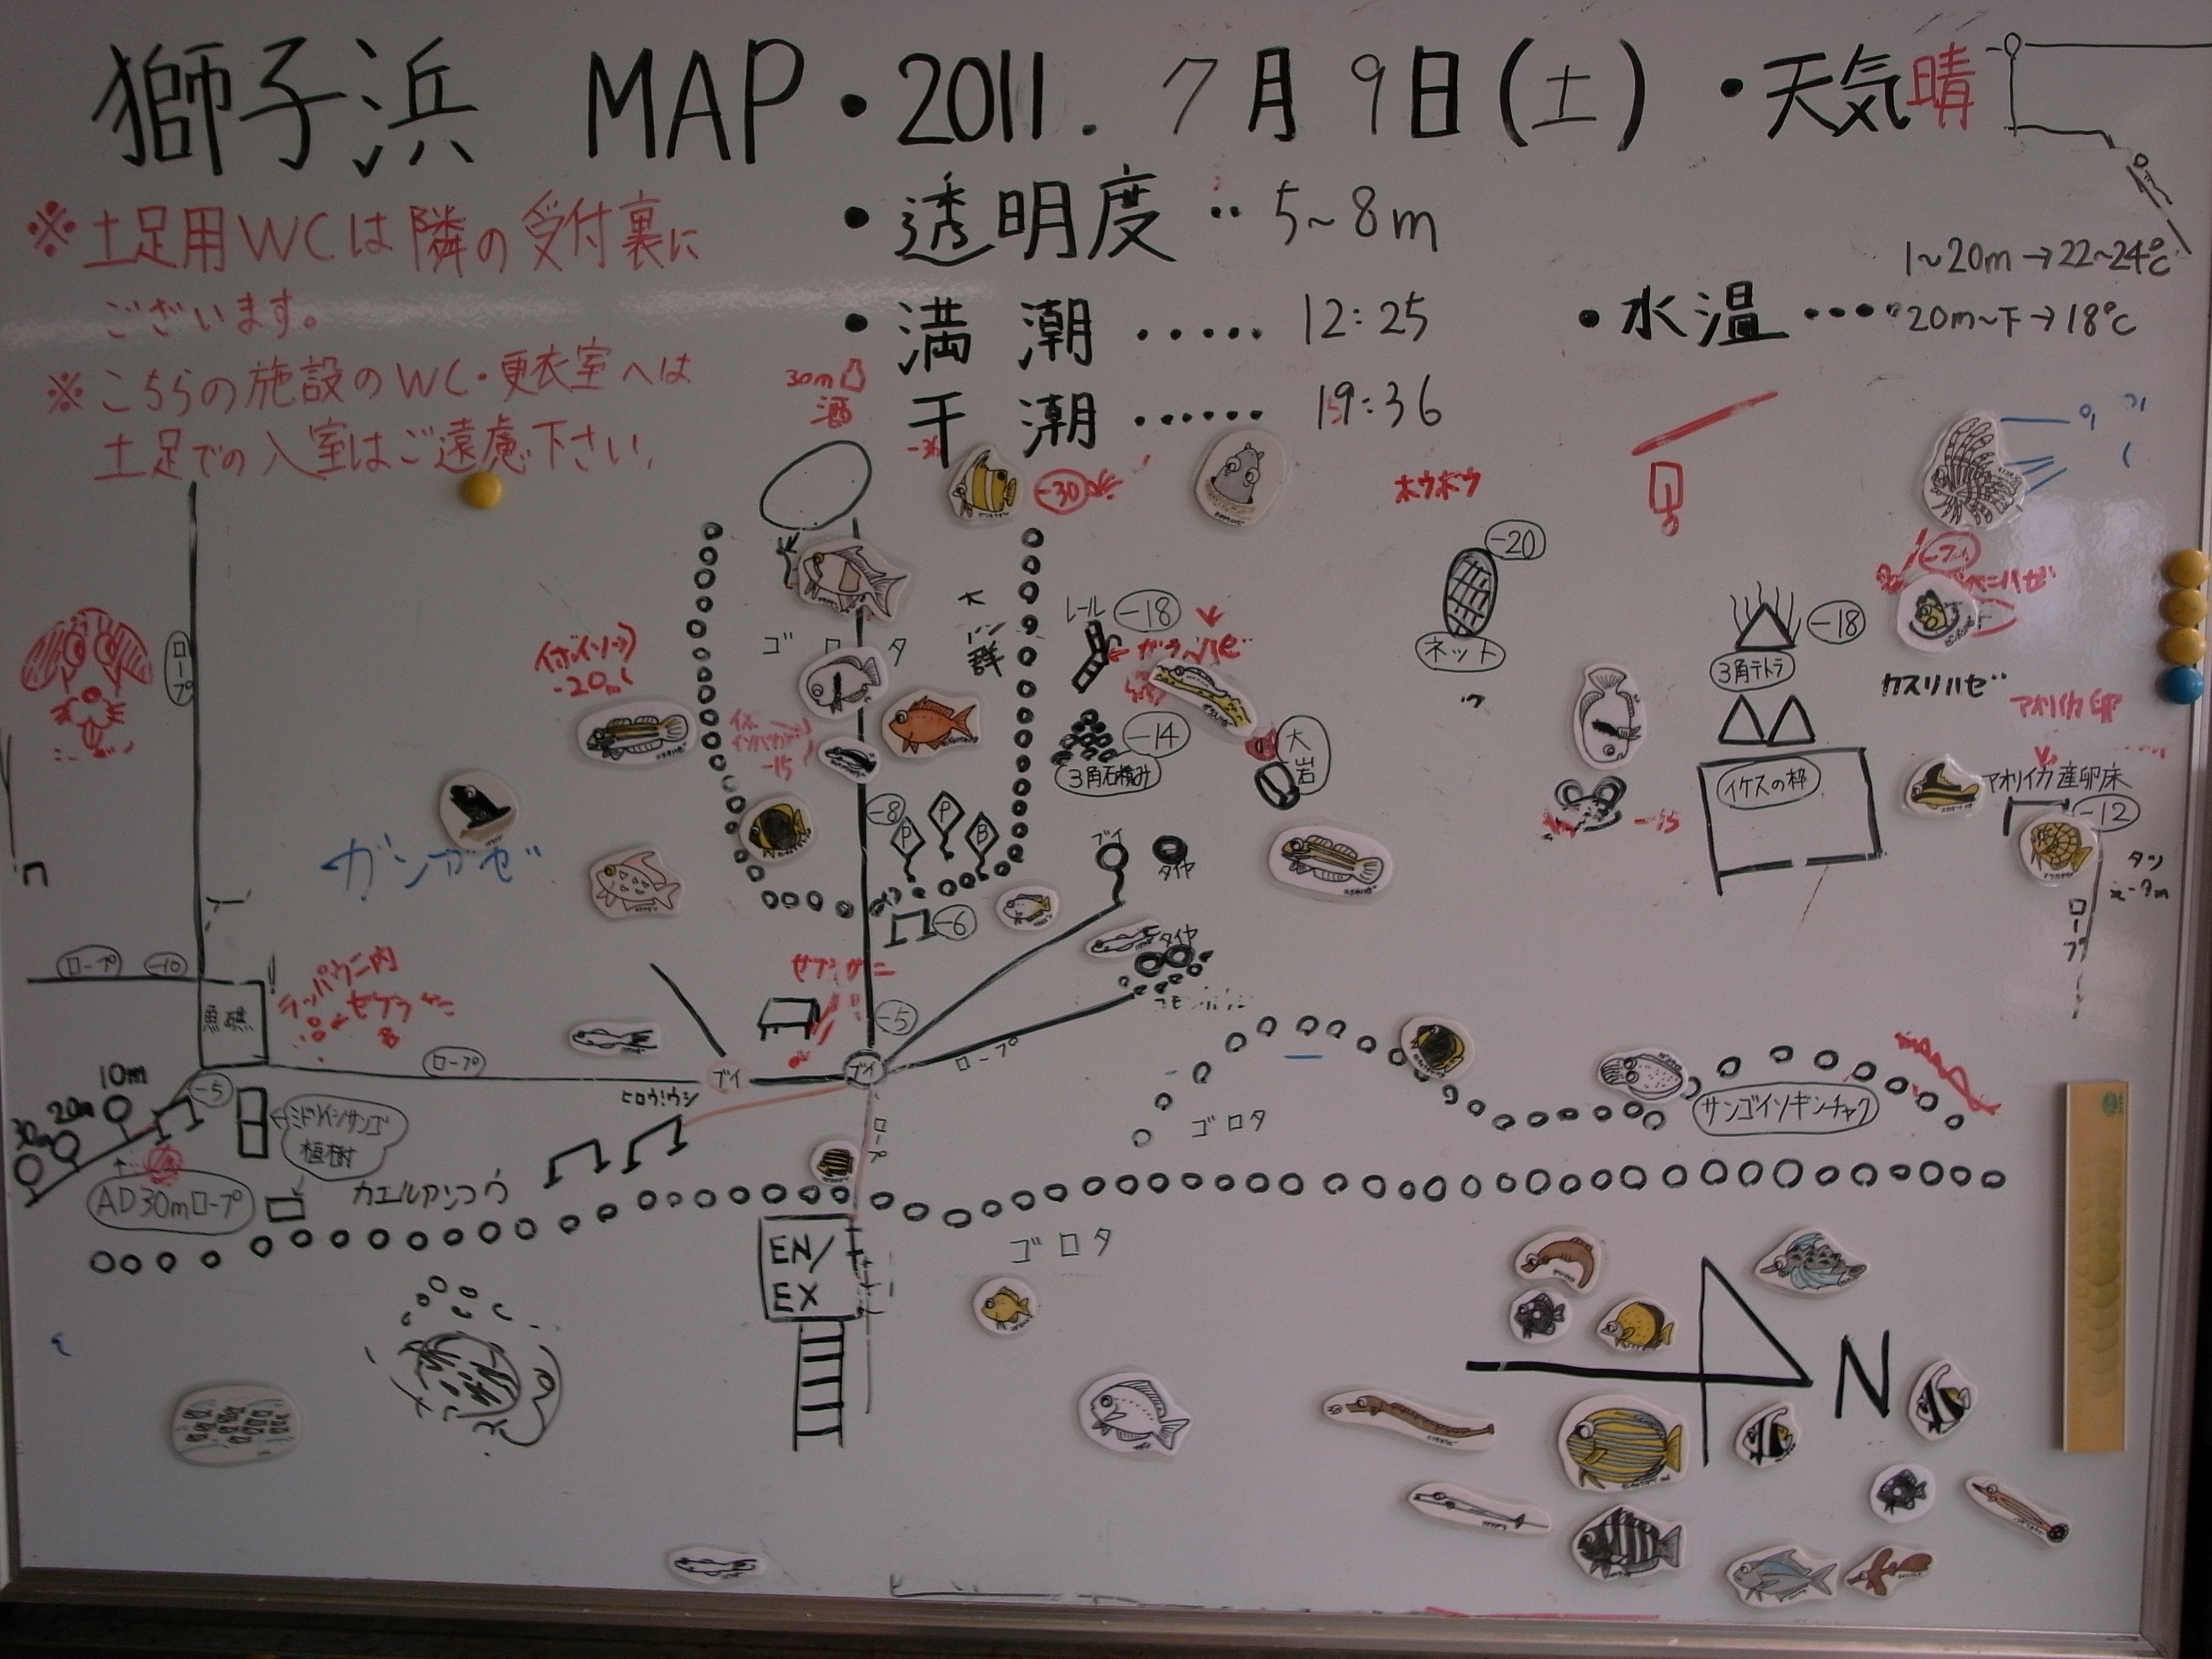 獅子浜 MAP・2011. 7月9日(土) ・天気晴
・透明度‥5~8m
・満潮‥‥‥12:25
干潮‥‥‥19:36
・水温‥‥
1~20m→22~24℃
20m~下→18℃
※土足用WCは隣の受付裏に
ございます。
※こちらの施設のWC・更衣室へは
土足での入室はご遠慮下さい
30m
酒
-36
-30
ホウボウ
-20
ネット
ロープ
ゴロタ
群
レール
-18
-14
3角石積み
大岩
-20m
-15
-8
P
P
B
ブイ
タイヤ
-6
タイヤ
-18
3角テトラ
イケスの枠
-15
カスリハゼ
アオリイカ卵
アオリイカ産卵床
-12
タツ
ロープ
ガンガゼ
ロープ
-10
魚礁
ラッパウニ内
ゼブラガニ
ゼブラガニ
-5
ブイ
ブイ
ロープ
ロープ
ロープ
ゴロタ
サンゴイソギンチャク
10m
20m
30m
-5
ミドリイシサンゴ
植樹
AD30mロープ
カエルアンコウ
ヒロウミウシ
EN/
EX
ゴロタ
N